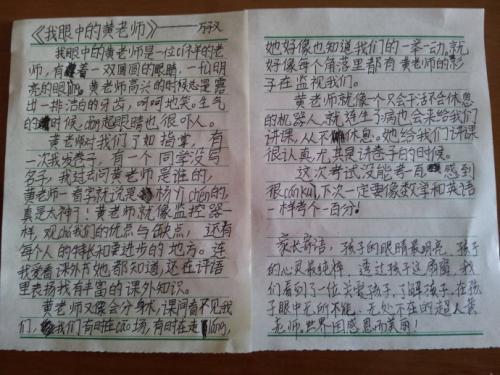 《我眼中的黄老师》——万子义
我眼中的黄老师是一位ci祥的老
师,有着一双圆圆的眼睛,一扎明
亮的眼血。黄老师高兴的时候总是露
出一排洁白的牙齿,呵呵地笑。生气
的时候,瞪起眼睛也很吓人。
黄老师对我们了如指掌,有
一次我发卷子,有一个同学没写
名子,我过去问黄老师是谁的,
黄老师一看字就说是杨亦chen的,
真是太神了!黄老师就像监控器一
样,观cha我们的优点与缺点,还有
每个人的特长和要进步的地方。连
我爱看课外书她都知道,还在评语
里表扬我有丰富的课外知识。
黄老师又像会分身术,课间看不见我
们,我们有时在cao场,有时在走lang,
她好像也知道我们的一举一动。就
好像每个角落里都有黄老师的影
子在监视我们。
黄老师就像一个只会干活不会休息
的机器人,就连生了病也会来给我们
讲课,从不休息。她给我们讲课
很认真,尤其是讲卷子的时候。
这次考试没能考一百感到
很can kui,下次一定要像数学和英语
一样考一百分!
家长寄语,孩子的眼睛最明亮,孩子
的心灵最纯粹,透过孩子这扇窗,我
们看到了一位关爱孩子,了解孩子,在孩
子眼中无所不能,无处不在的超人黄
老师,世界因感恩而美丽!